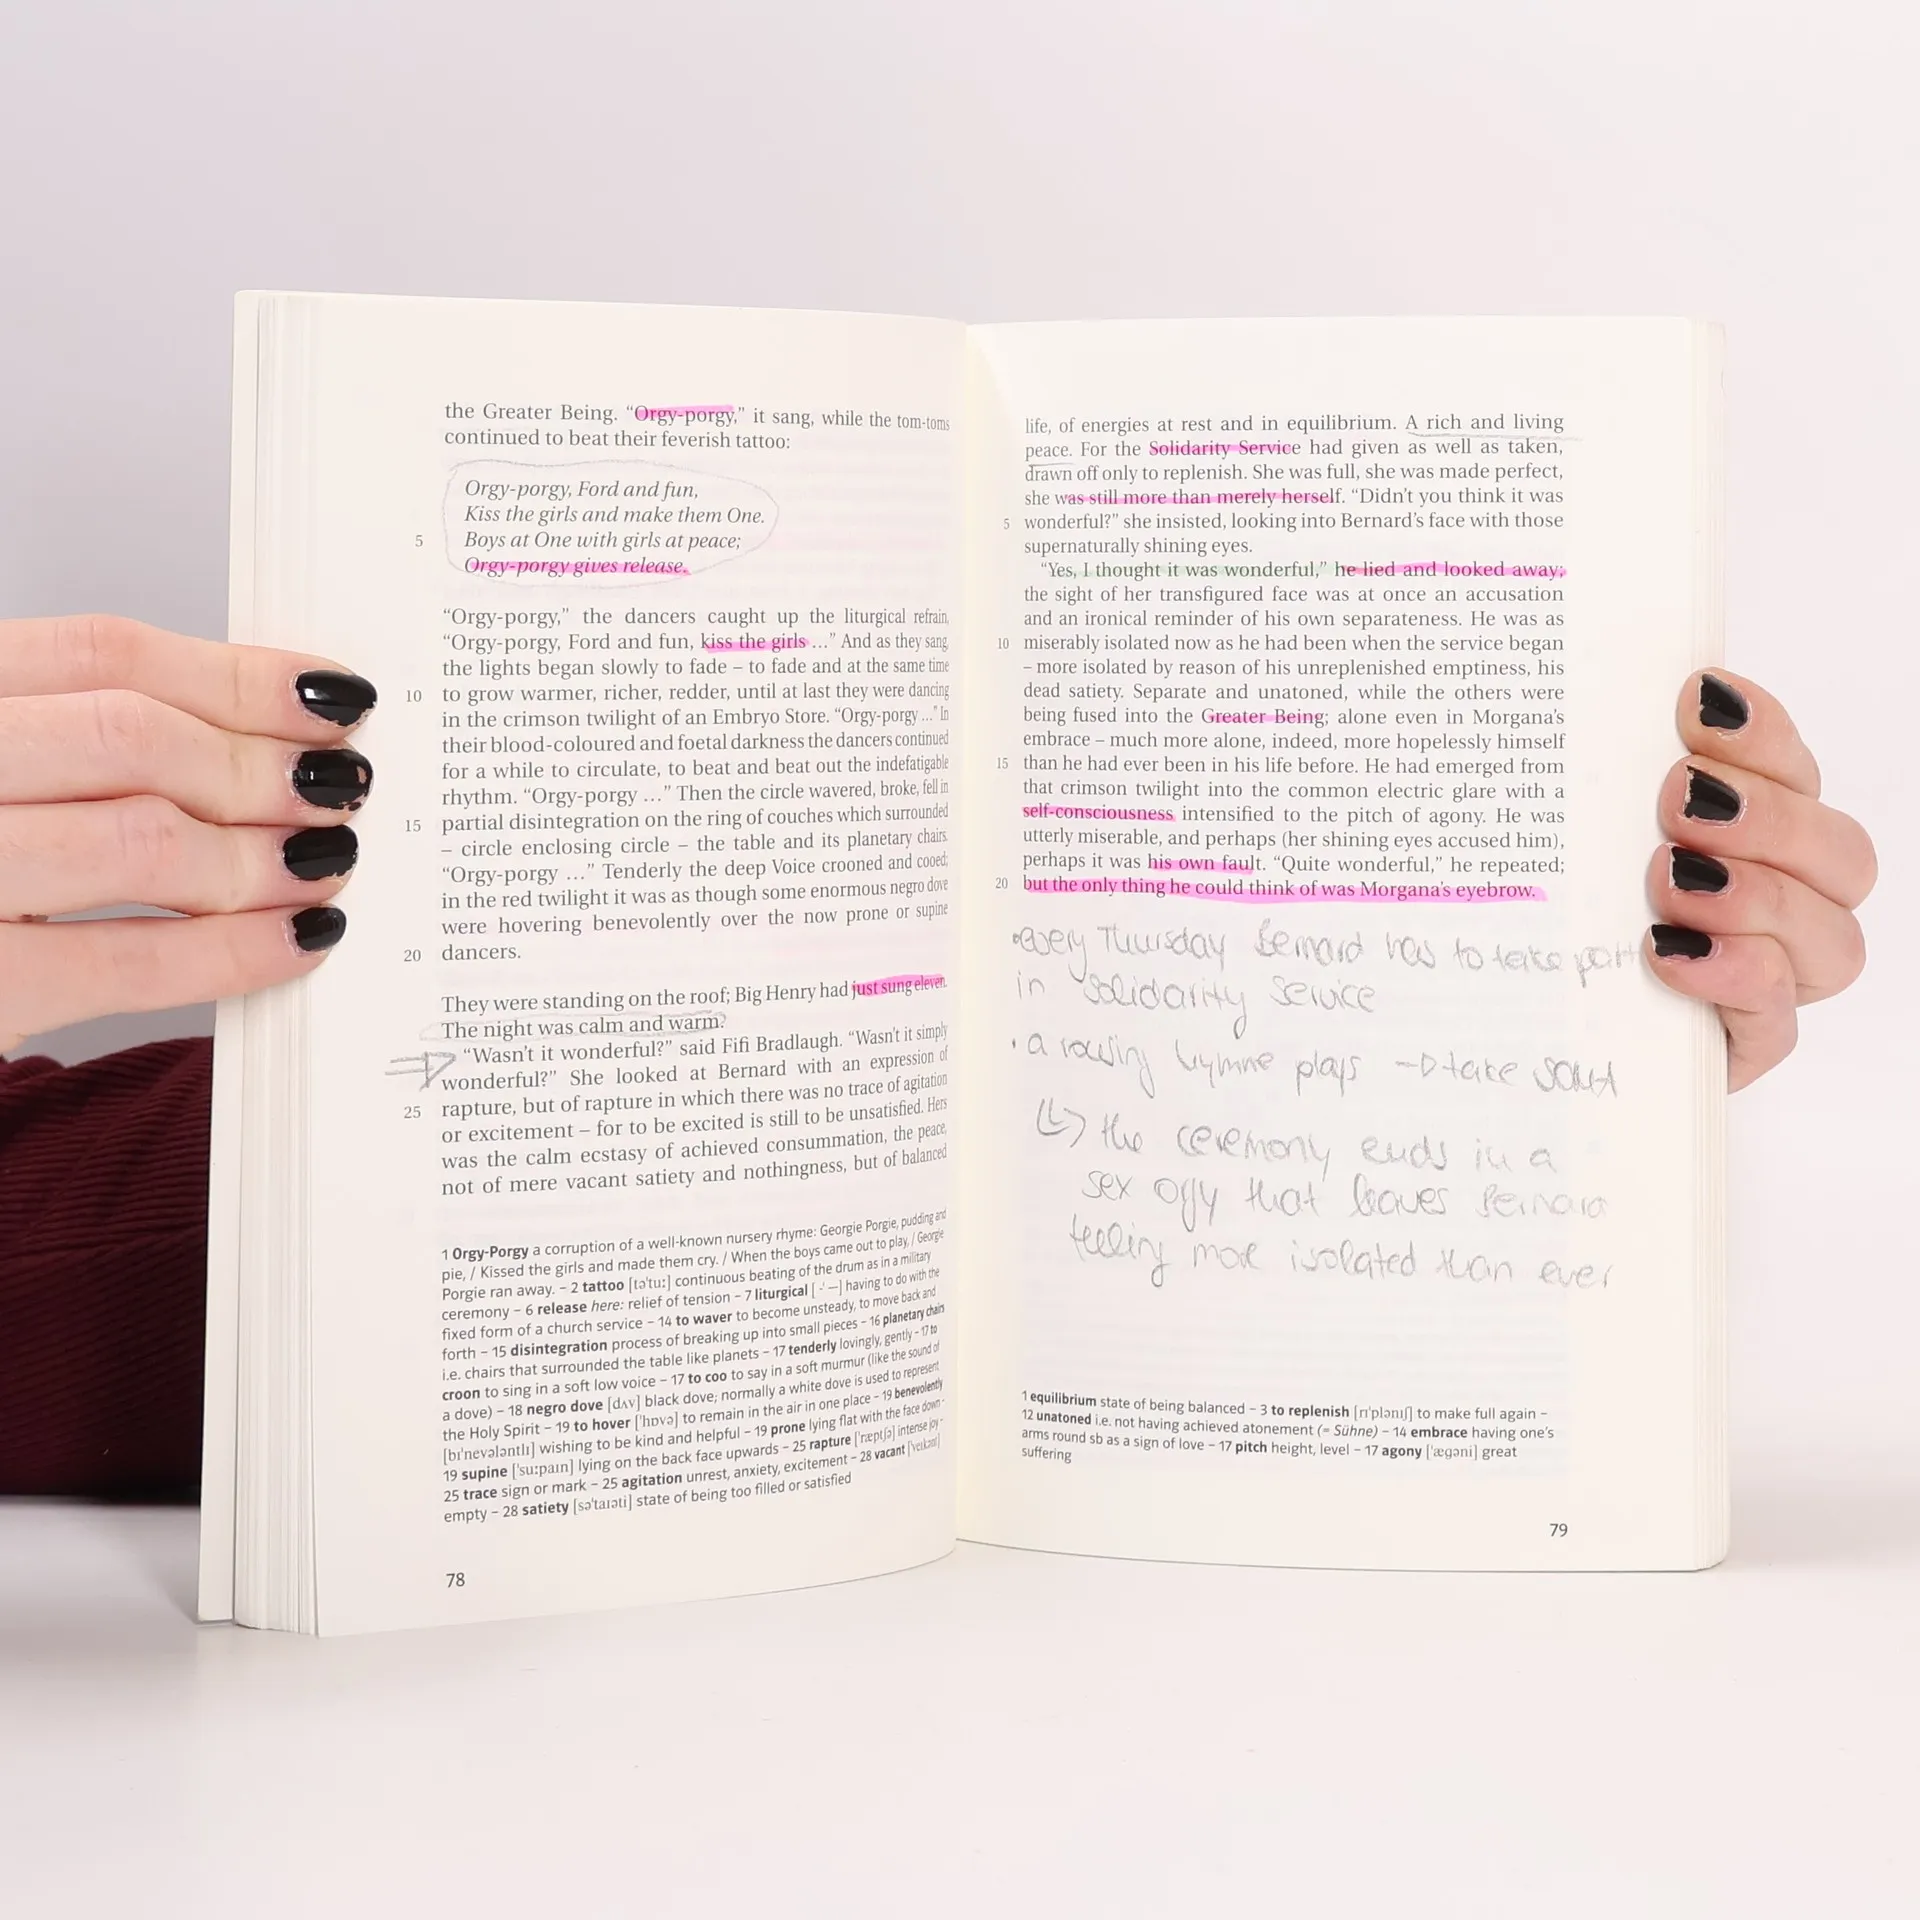 the Greater Being. “Orgy-porgy,” it sang, while the tom-toms
continued to beat their feverish tattoo:
Orgy-porgy, Ford and fun,
Kiss the girls and make them One.
5 Boys at One with girls at peace;
Orgy-porgy gives release.
“Orgy-porgy,” the dancers caught up the liturgical refrain,
“Orgy-porgy, Ford and fun, kiss the girls ...” And as they sang,
the lights began slowly to fade – to fade and at the same time
10 to grow warmer, richer, redder, until at last they were dancing
in the crimson twilight of an Embryo Store. “Orgy-porgy ...” In
their blood-coloured and foetal darkness the dancers continued
for a while to circulate, to beat and beat out the indefatigable
rhythm. “Orgy-porgy ...” Then the circle wavered, broke, fell in
15 partial disintegration on the ring of couches which surrounded
– circle enclosing circle – the table and its planetary chairs.
“Orgy-porgy ...” Tenderly the deep Voice crooned and cooed;
in the red twilight it was as though some enormous negro dove
were hovering benevolently over the now prone or supine
20 dancers.
They were standing on the roof; Big Henry had just sung eleven.
The night was calm and warm.
“Wasn’t it wonderful?” said Fifi Bradlaugh. “Wasn’t it simply
wonderful?” She looked at Bernard with an expression of
25 rapture, but of rapture in which there was no trace of agitation
or excitement – for to be excited is still to be unsatisfied. Hers
was the calm ecstasy of achieved consummation, the peace,
not of mere vacant satiety and nothingness, but of balanced
1 Orgy-Porgy a corruption of a well-known nursery rhyme: Georgie Porgie, pudding and
pie, / Kissed the girls and made them cry. / When the boys came out to play, / Georgie
Porgie ran away. – 2 tattoo [təˈtuː] continuous beating of the drum as in a military
ceremony – 6 release here: relief of tension – 7 liturgical [-ˈ—] having to do with the
fixed form of a church service – 14 to waver to become unsteady, to move back and
forth – 15 disintegration process of breaking up into small pieces – 16 planetary chairs
i.e. chairs that surrounded the table like planets – 17 tenderly lovingly, gently – 17 to
croon to sing in a soft low voice – 17 to coo to say in a soft murmur (like the sound of
a dove) – 18 negro dove [dʌv] black dove; normally a white dove is used to represent
the Holy Spirit – 19 to hover [ˈhɒvə] to remain in the air in one place – 19 benevolently
[bɪˈnevələntlɪ] wishing to be kind and helpful – 19 prone lying flat with the face down –
19 supine [ˈsuːpaɪn] lying on the back face upwards – 25 rapture [ˈræptʃə] intense joy –
25 trace sign or mark – 25 agitation unrest, anxiety, excitement – 28 vacant [ˈveɪkənt]
empty – 28 satiety [səˈtaɪəti] state of being too filled or satisfied
78
life, of energies at rest and in equilibrium. A rich and living
peace. For the Solidarity Service had given as well as taken,
drawn off only to replenish. She was full, she was made perfect,
she was still more than merely herself. “Didn’t you think it was
5 wonderful?” she insisted, looking into Bernard’s face with those
supernaturally shining eyes.
“Yes, I thought it was wonderful,” he lied and looked away;
the sight of her transfigured face was at once an accusation
and an ironical reminder of his own separateness. He was as
10 miserably isolated now as he had been when the service began
– more isolated by reason of his unreplenished emptiness, his
dead satiety. Separate and unatoned, while the others were
being fused into the Greater Being; alone even in Morgana’s
embrace – much more alone, indeed, more hopelessly himself
15 than he had ever been in his life before. He had emerged from
that crimson twilight into the common electric glare with a
self-consciousness intensified to the pitch of agony. He was
utterly miserable, and perhaps (her shining eyes accused him),
perhaps it was his own fault. “Quite wonderful,” he repeated;
20 but the only thing he could think of was Morgana’s eyebrow.
• every Thursday Bernard has to take part
in Solidarity Service
• a rousing hymne plays → take soma
the ceremony ends in a
sex orgy that leaves Bernard
feeling more isolated than ever
1 equilibrium state of being balanced – 3 to replenish [rɪˈplənɪʃ] to make full again –
12 unatoned i.e. not having achieved atonement (= Sühne) – 14 embrace having one’s
arms round sb as a sign of love – 17 pitch height, level – 17 agony [ˈægəni] great
suffering
79